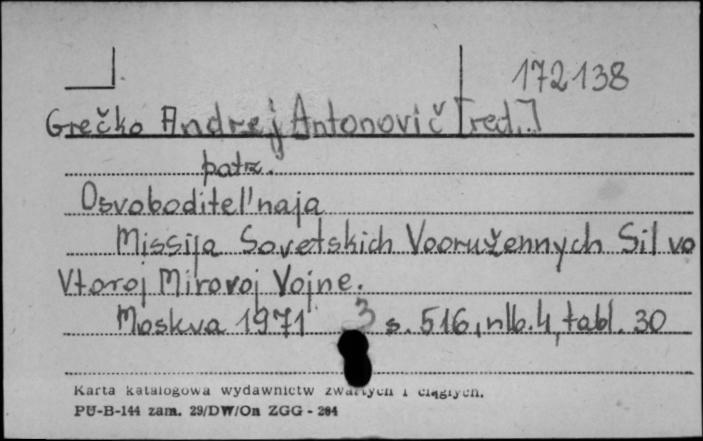 172138
Grečko Andrej Antonovič [red.]
patrz.
Osvoboditel'naja
Missija Sovetskich Vooružennych Sil vo
Vtoroj Mirovoj Vojne.
Moskva 1971 3 s. 516, nlb. 4, tabl. 30
Karta katalogowa wydawnictw zwartych i ciągłych.
PU-B-144 zam. 29/DW/On ZGG - 264